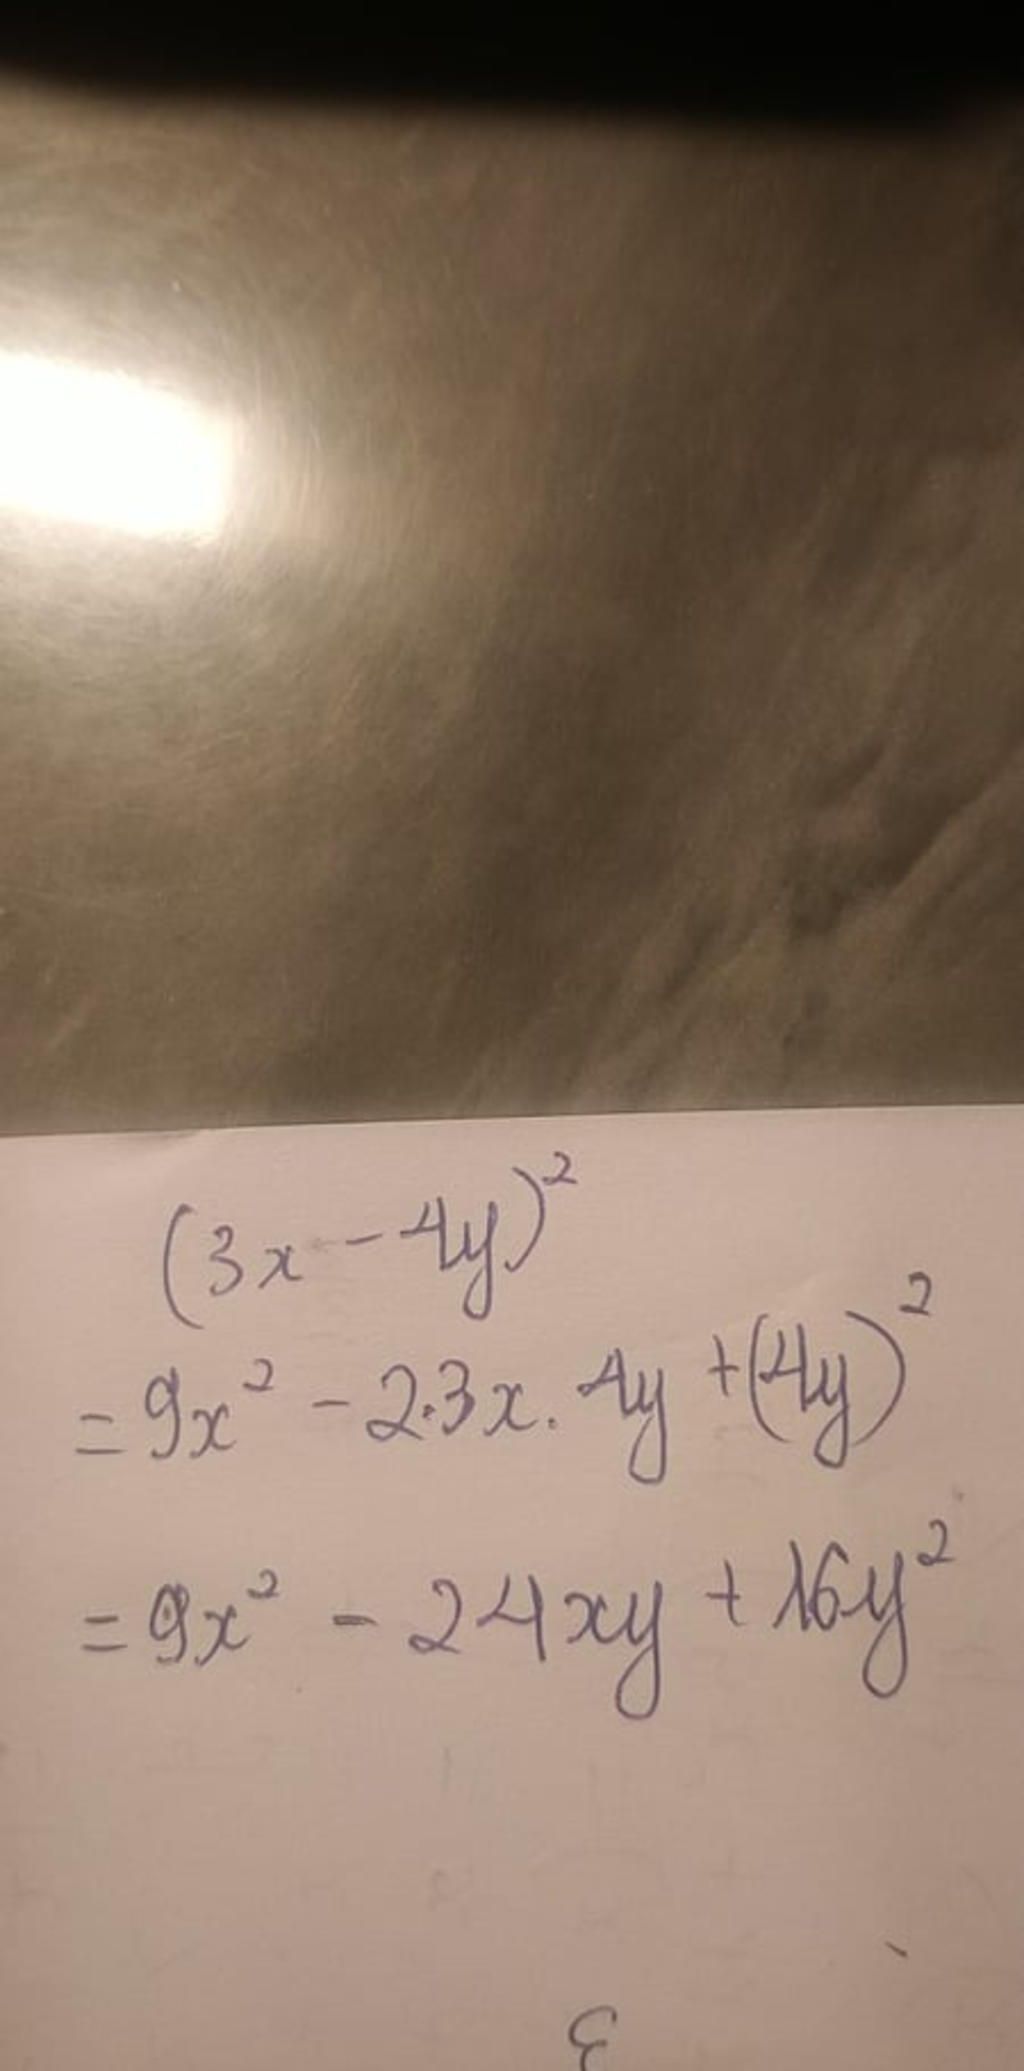 (3x - 4y)²
= 9x² - 2·3x. 4y + (4y)²
= 9x² - 24xy + 16y²